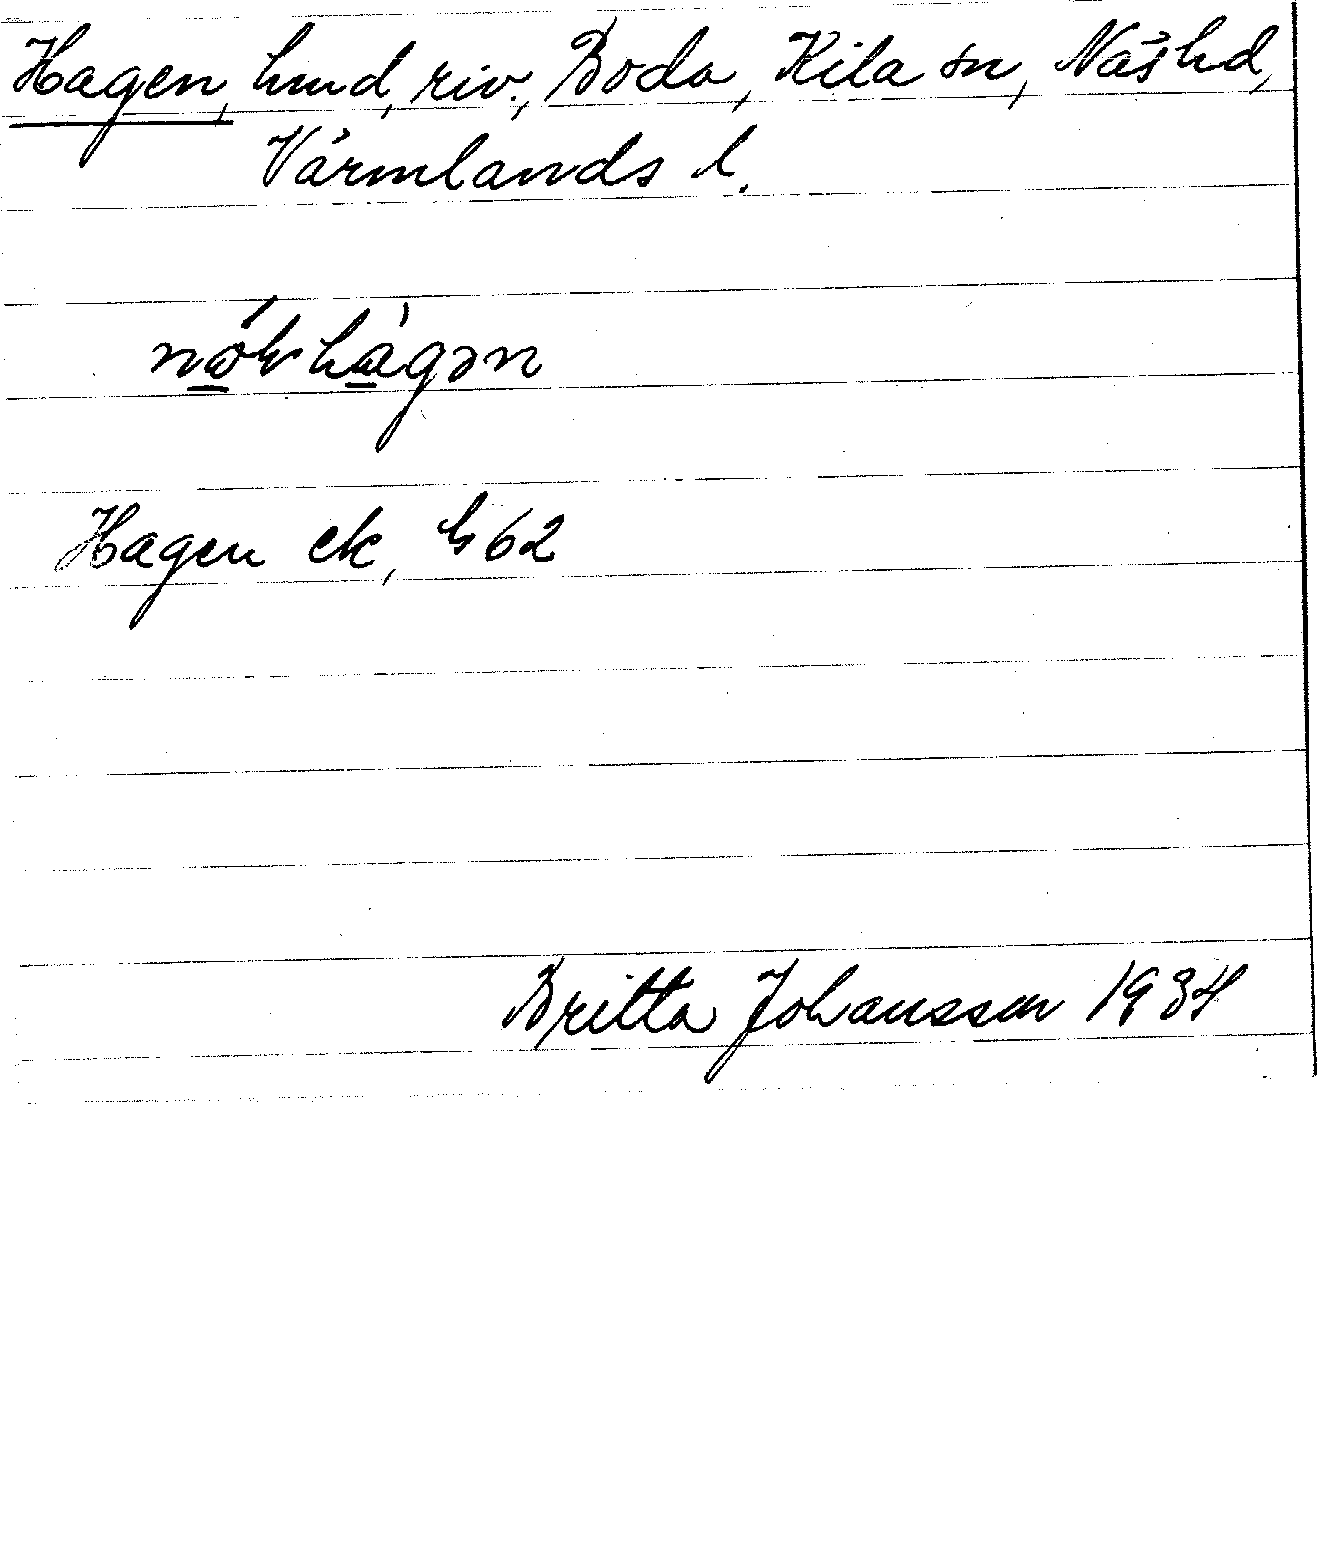 Hagen, hmd, riv., Boda, Kila sn, Näs hd,
Värmlands l.
Hagen ek, G 62
Britta Johansson 1934